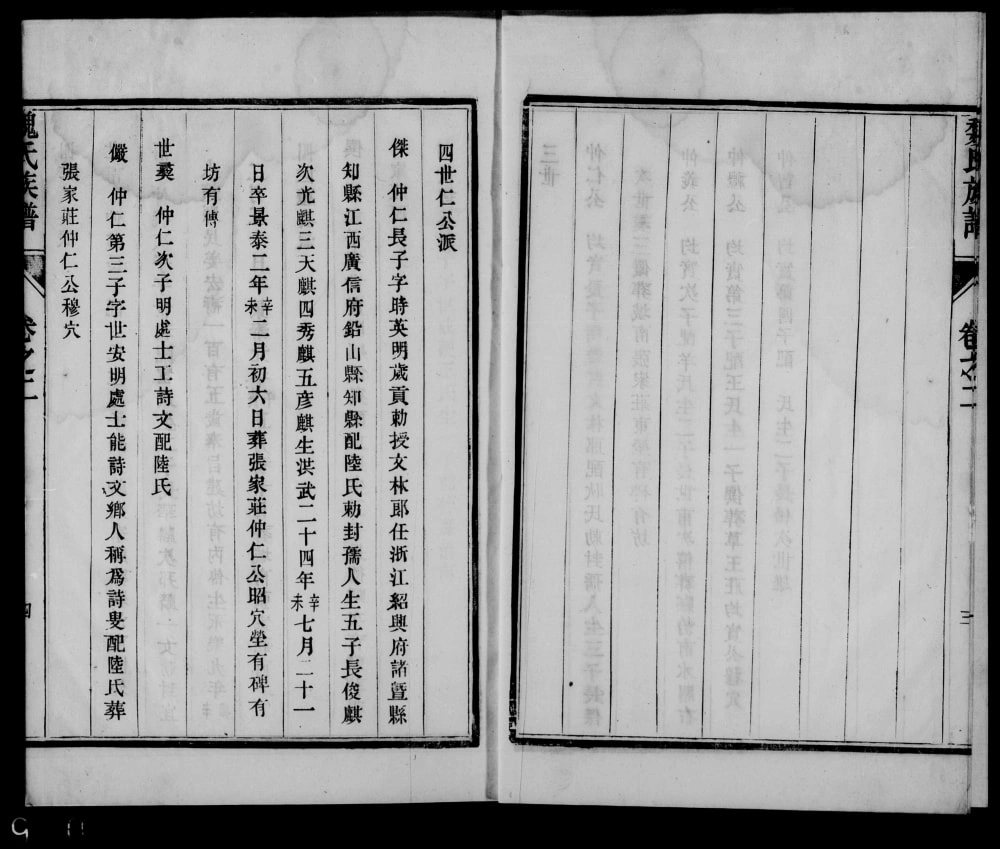 魏氏族譜
卷之二
三
四世仁公派
傑 仲仁長子字時英明歲貢勅授文林郎任浙江紹興府諸暨縣
知縣江西廣信府鉛山縣知縣配陸氏勅封孺人生五子長俊麒
次光麒三天麒四秀麒五彥麒生洪武二十四年辛未七月二十一
日卒景泰二年辛未二月初六日葬張家莊仲仁公昭穴塋有碑有
坊有傳
世䕫 仲仁次子明處士工詩文配陸氏
儼 仲仁第三子字世安明處士能詩文鄉人稱爲詩叟配陸氏葬
張家莊仲仁公穆穴
魏氏族譜
卷之二
四